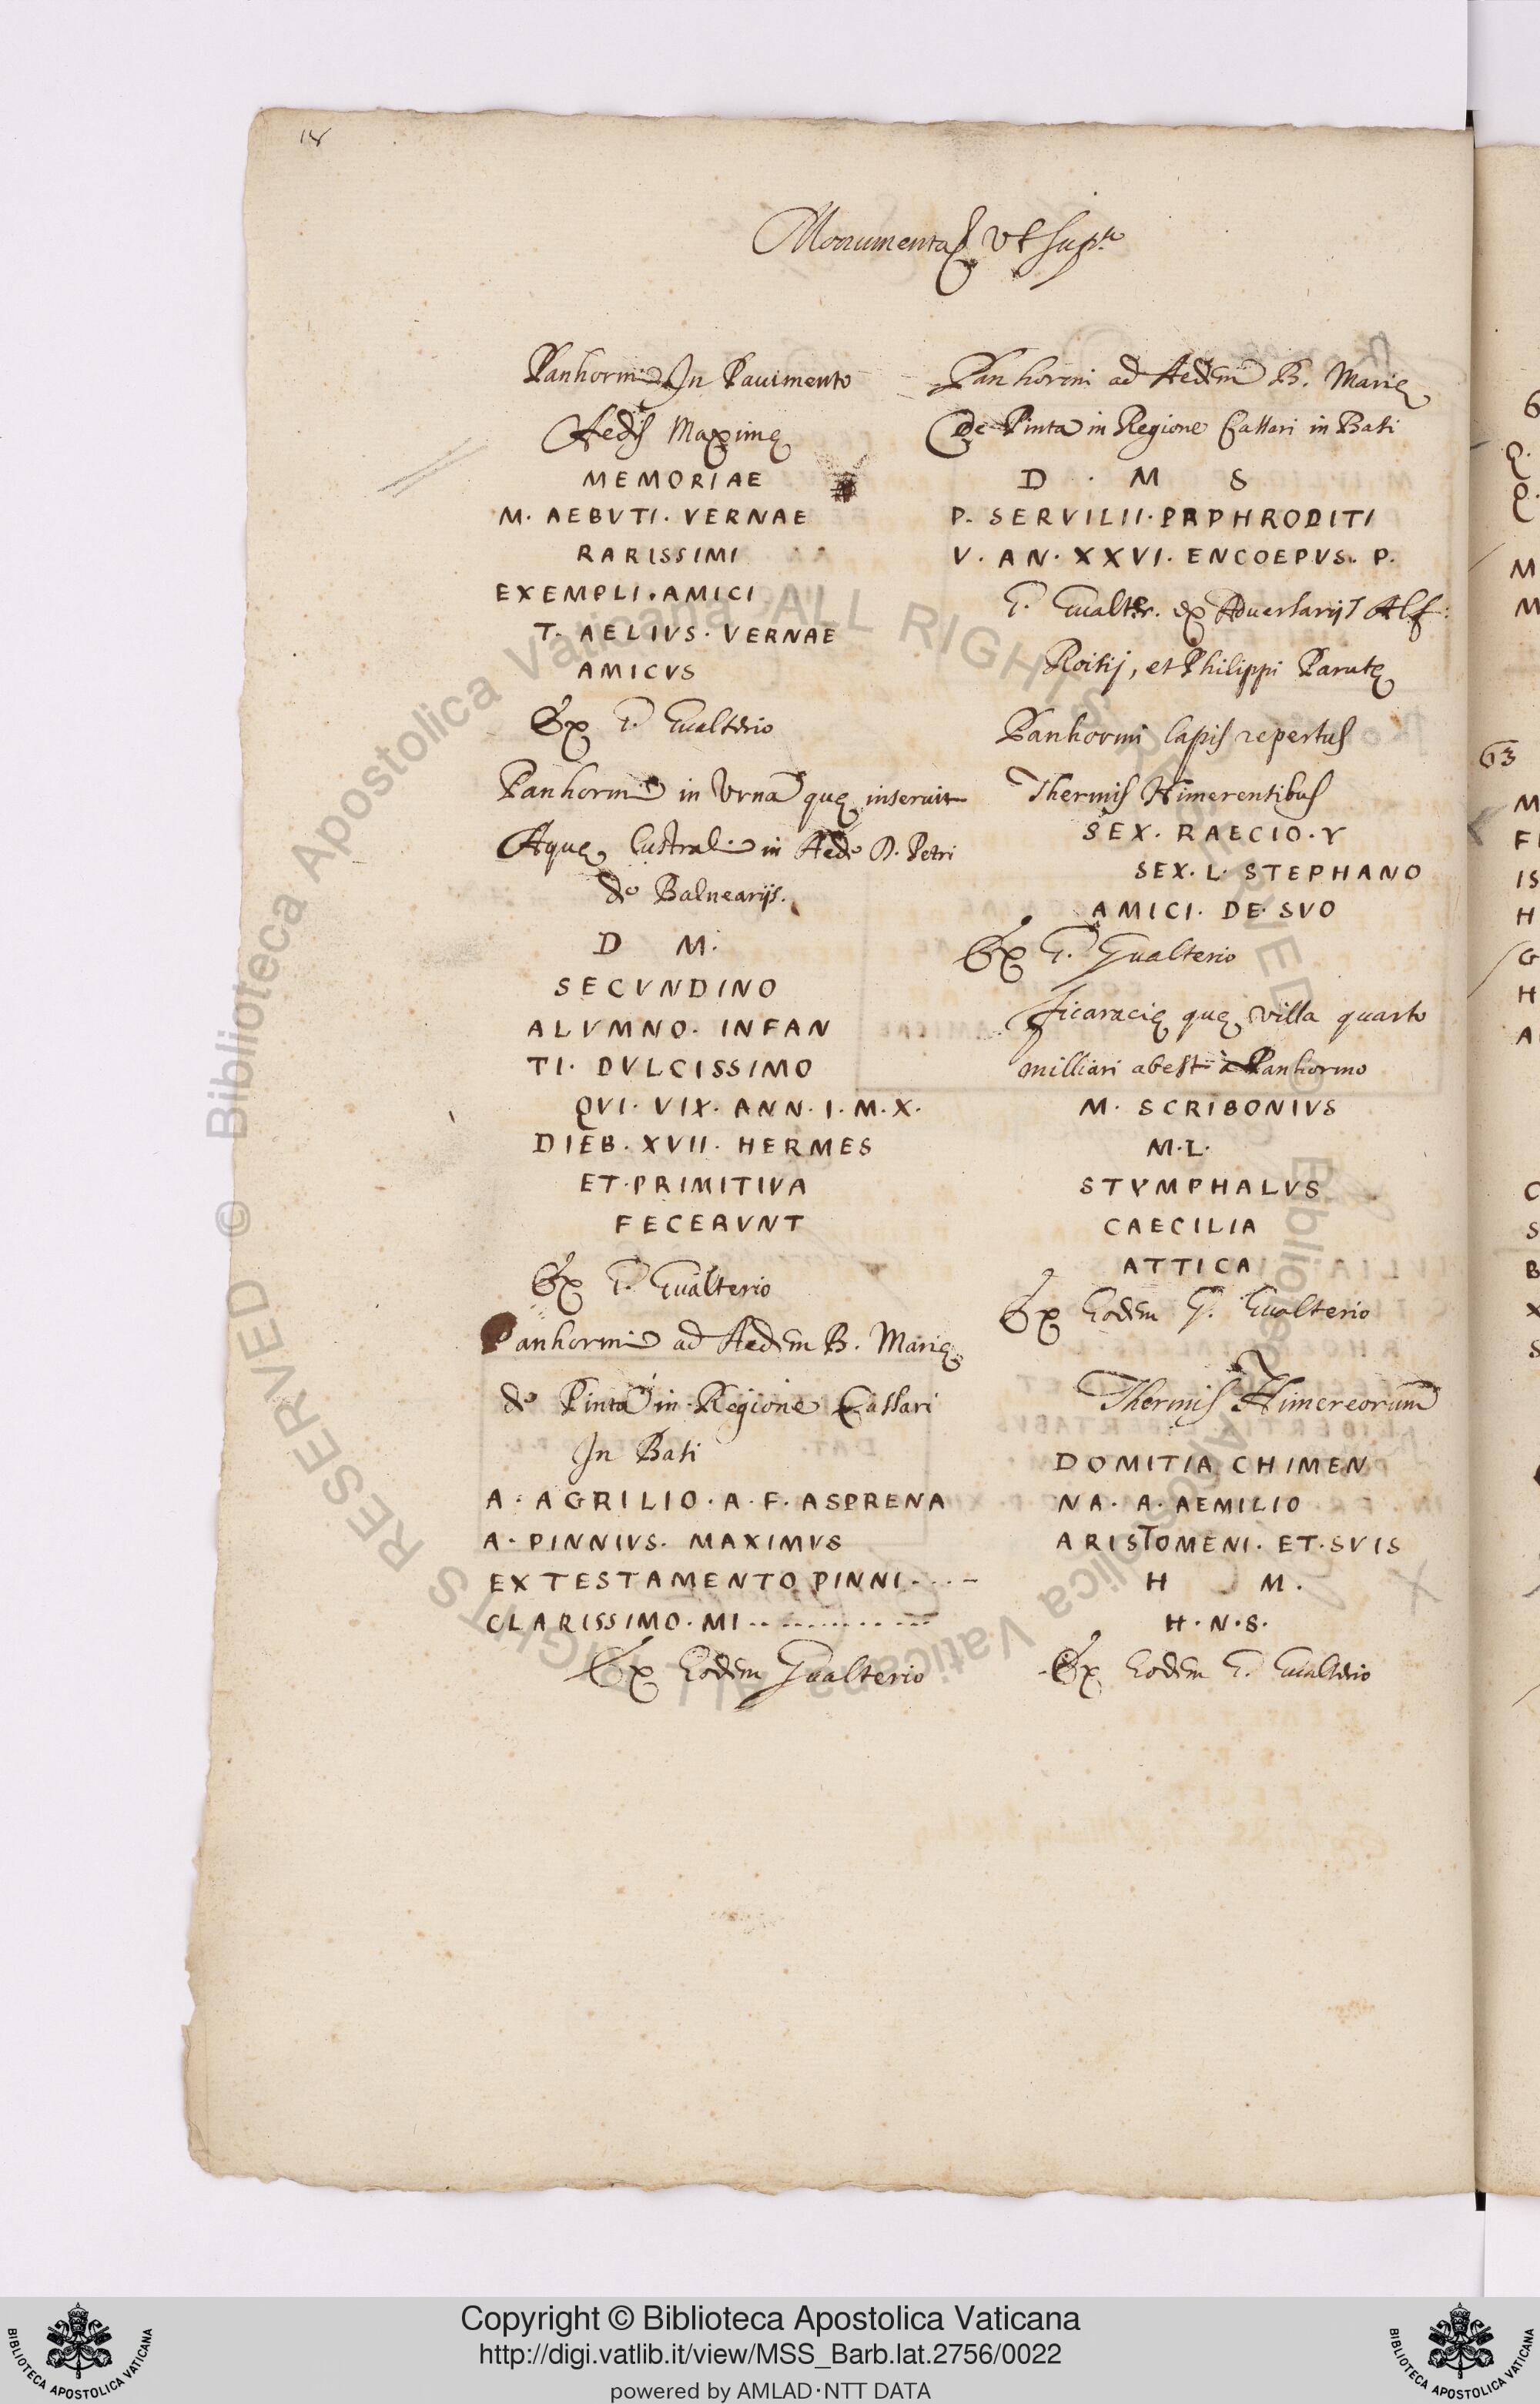 18
Monumenta Vt supra
Panhormi In Pauimento
Aedis Maximę
MEMORIAE
M. AEBVTI. VERNAE
RARISSIMI
EXEMPLI. AMICI
T. AELIVS. VERNAE
AMICVS
Ex G. Gualterio
Panhormi in Vrna quę inseruit
Aquę lustrali in Aede D. Petri
de Balnearijs.
D M.
SECVNDINO
ALVMNO. INFAN
TI. DVLCISSIMO
QVI. VIX. ANN. I. M. X.
DIEB. XVII. HERMES
ET. PRIMITIVA
FECERVNT
Ex G. Gualterio
Panhormi ad Aedem B. Marię
de Pinta in Regione Cassari
In Basi
A. AGRILIO. A. F. ASPRENA
A. PINNIVS. MAXIMVS
EX TESTAMENTO PINNI....–
CLARISSIMO. MI............
Ex Eodem Gualterio
Panhormi ad Aedem B. Marię
de Pinta in Regione Cassari in Basi
D . M S
P. SERVILII. PRPHRODITI
V. AN. XXVI. ENCOEPVS. P.
G. Gualter. ex Aduersarijs Alf:
Roisij, et Philippi Parutę
Panhormi lapis repertus
Thermis Himerensibus
SEX. RAECIO. Y
SEX. L. STEPHANO
AMICI. DE. SVO
Ex G. Gualterio
Ficaracię quę villa quarto
milliari abest à Panhormo
M. SCRIBONIVS
M. L.
STYMPHALVS
CAECILIA
ATTICA
Ex Eodem G. Gualterio
Thermis Himereorum
DOMITIA CHIMEN
NA. A. AEMILIO
ARISTOMENI. ET. SVIS
H M.
H. N. S.
Ex Eodem G. Gualterio
63
Copyright © Biblioteca Apostolica Vaticana
http://digi.vatlib.it/view/MSS_Barb.lat.2756/0022
powered by AMLAD·NTT DATA
BIBLIOTECA APOSTOLICA VATICANA
BIBLIOTECA APOSTOLICA VATICANA
© Biblioteca Apostolica Vaticana ALL RIGHTS RESERVED © Biblioteca Apostolica Vaticana ALL RIGHTS RESERVED